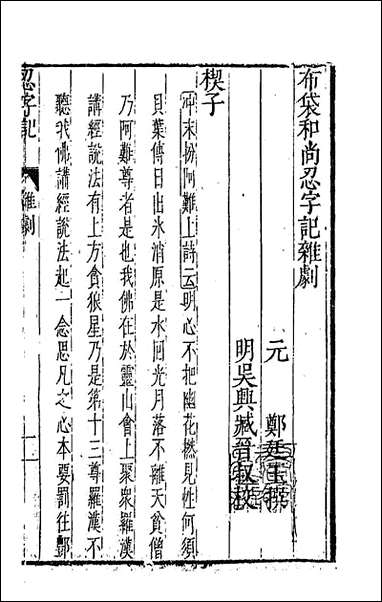 布袋和尚忍字記雜劇
元　鄭廷玉撰
明吳興臧晉叔校
楔子
冲末扮阿難上詩云明心不把幽花撚見性何須
貝葉傳日出氷消原是水回光月落不離天貧僧
乃阿難尊者是也我佛在於靈山會上聚衆羅漢
講經說法有上方貪狼星乃是第十三尊羅漢不
聽我佛講經說法起一念思凡之心本要罰往酆
忍字記　雜劇　一